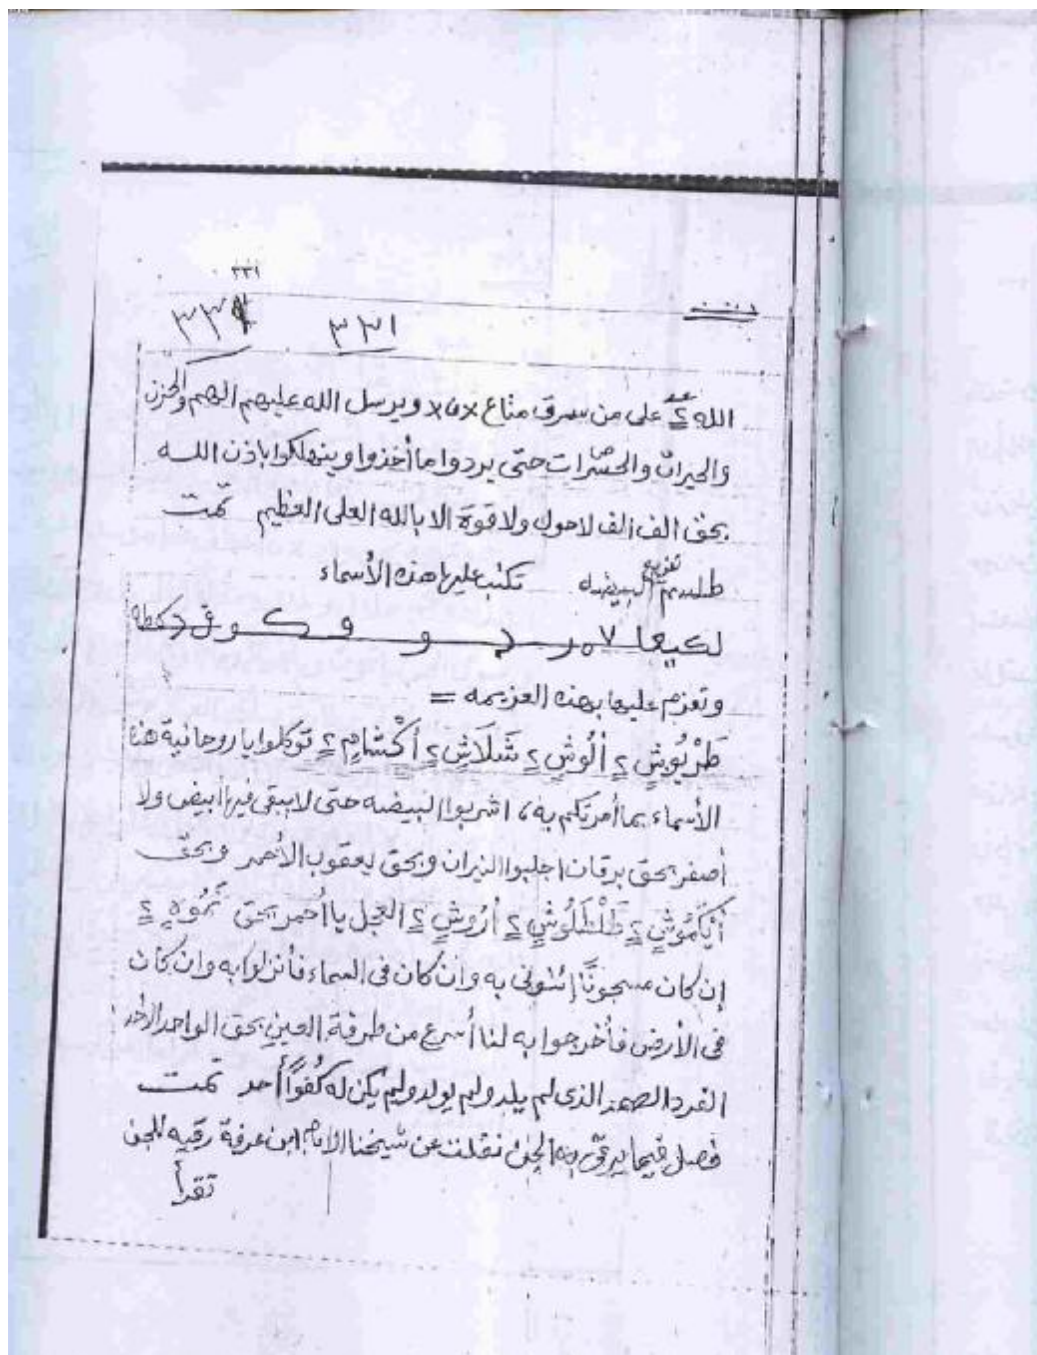 ٣٣١
٣٣١
الله ٢ على من سرق متاع ×٥× ويرسل الله عليهم الهم والحزن
والحيران والحشرات حتى يردوا ما أخذوا وينهلكوا باذن الله
بحق الف الف لاحول ولا قوة الا بالله العلى العظيم تمت
طلسم تفزيع البيضه تكتب عليها هذه الأسماء
وتعزم عليها بهذه العزيمه =
طَرْيُوشٍ ٢ أَلُوشٍ ٢ شَلَاشٍ ٢ أَكْشَامٍ ٢ توكلوا ياروحانية هذه
الأسماء بما أمرتكم به، اشربوا البيضه حتى لايبقى فيها أبيض ولا
أصفر بحق برقان اجلبوا النيران وبحق يعقوب الأحمر وبحق
أَيْكَمُوشٍ ٢ طَلْطَلُوشٍ ٢ أرُوشٍ ٢ العجل يا أحمر بحق ٢
إن كان مسجونًا إئتونى به وان كان فى السماء فأنزلوا به وان كان
فى الأرض فأخرجوا به لنا أسرع من طرفة العين بحق الواحد الأحد
الفرد الصمد الذى لم يلد ولم يولد ولم يكن له كُفُوًا أحد تمت
فصل فيما يرقى به الجن نقلت عن شيخنا الامام ابن عرفة رقيه للجن
تقرأ